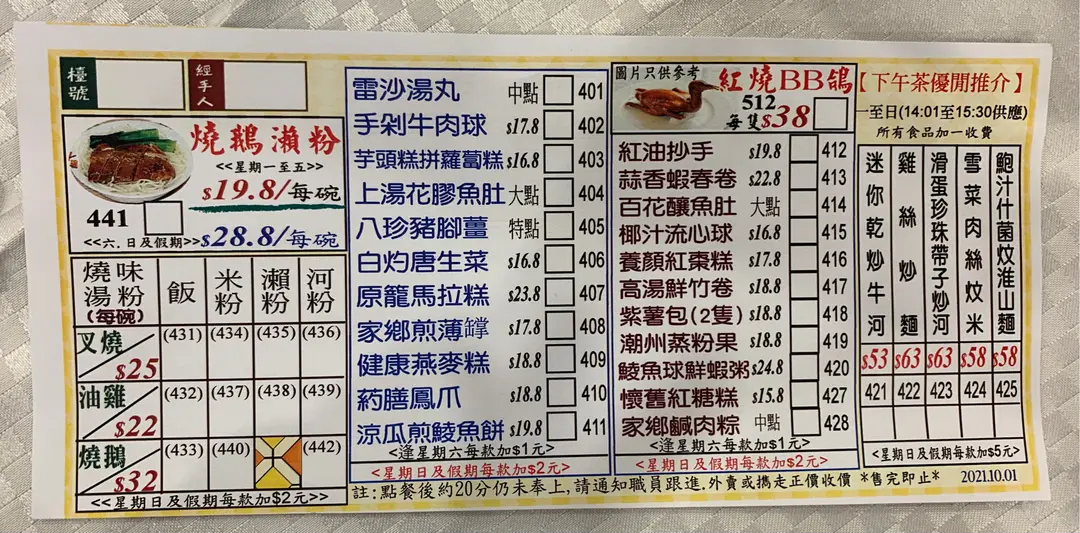 檯號
經手人
燒鵝瀨粉
<<星期一至五>>
$19.8/每碗
441
<<六.日及假期>>$28.8/每碗
燒味湯粉(每碗) 飯 米粉 瀨粉 河粉
叉燒 $25 (431) (434) (435) (436)
油雞 $22 (432) (437) (438) (439)
燒鵝 $32 (433) (440) (442)
<<星期日及假期每款加$2元>>
雷沙湯丸 中點 401
手剁牛肉球 $17.8 402
芋頭糕拼蘿蔔糕 $16.8 403
上湯花膠魚肚 大點 404
八珍豬腳薑 特點 405
白灼唐生菜 $16.8 406
原籠馬拉糕 $23.8 407
家鄉煎薄罉 $17.8 408
健康燕麥糕 $18.8 409
葯膳鳳爪 $18.8 410
涼瓜煎鯪魚餅 $19.8 411
<逢星期六每款加$1元>
<星期日及假期每款加$2元>
圖片只供參考
紅燒BB鴿
512
每隻$38
紅油抄手 $19.8 412
蒜香蝦春卷 $22.8 413
百花釀魚肚 大點 414
椰汁流心球 $16.8 415
養顏紅棗糕 $17.8 416
高湯鮮竹卷 $18.8 417
紫薯包(2隻) $18.8 418
潮州蒸粉果 $18.8 419
鯪魚球鮮蝦粥 $24.8 420
懷舊紅糖糕 $15.8 427
家鄉鹹肉粽 中點 428
<逢星期六每款加$1元>
<星期日及假期每款加$2元>
【下午茶優閒推介】
一至日(14:01至15:30供應)
所有食品加一收費
迷你乾炒牛河 $53 421
雞絲炒麵 $63 422
滑蛋珍珠帶子炒河 $63 423
雪菜肉絲炆米 $58 424
鮑汁什菌炆淮山麵 $58 425
<星期日及假期每款加$5元>
註:點餐後約20分仍未奉上,請通知職員跟進,外賣或攜走正價收價 *售完即止* 2021.10.01